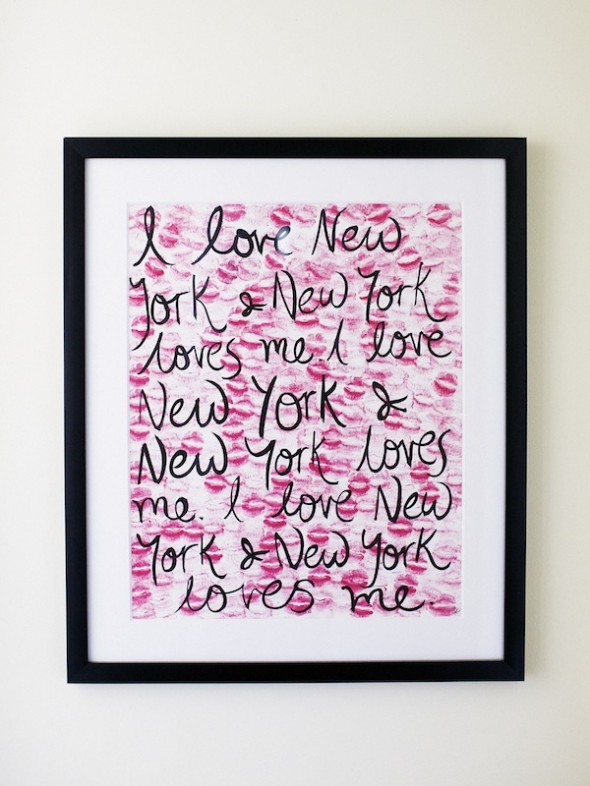 I love New
York & New York
loves me. I love
New York &
New York loves
me. I love New
York & New York
loves me.